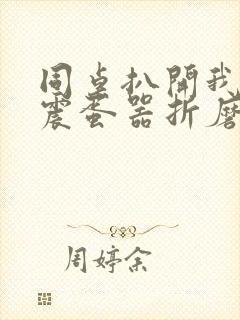 同桌扒開我
震蛋器折磨
周婷余